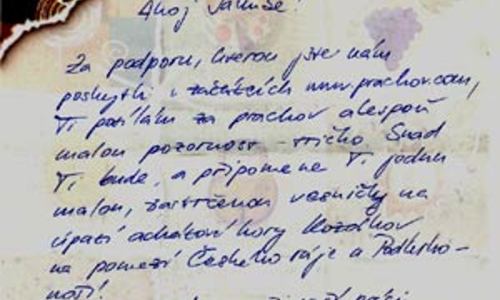 Ahoj
Za podporu, kterou jste nám
poskytli v začátcích www.prachov.com,
Ti posílám za prachov alespoň
malou pozornost - tričko. Snad
Ti bude, a připomene Ti jednu
malou, zastrčenou vesničky na
úpatí achátové hory Kozákov
na pomezí Českého ráje a Podkrko-
noší!